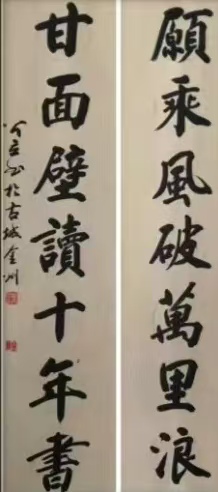 願乘風破萬里浪
甘面壁讀十年書
於古城金州